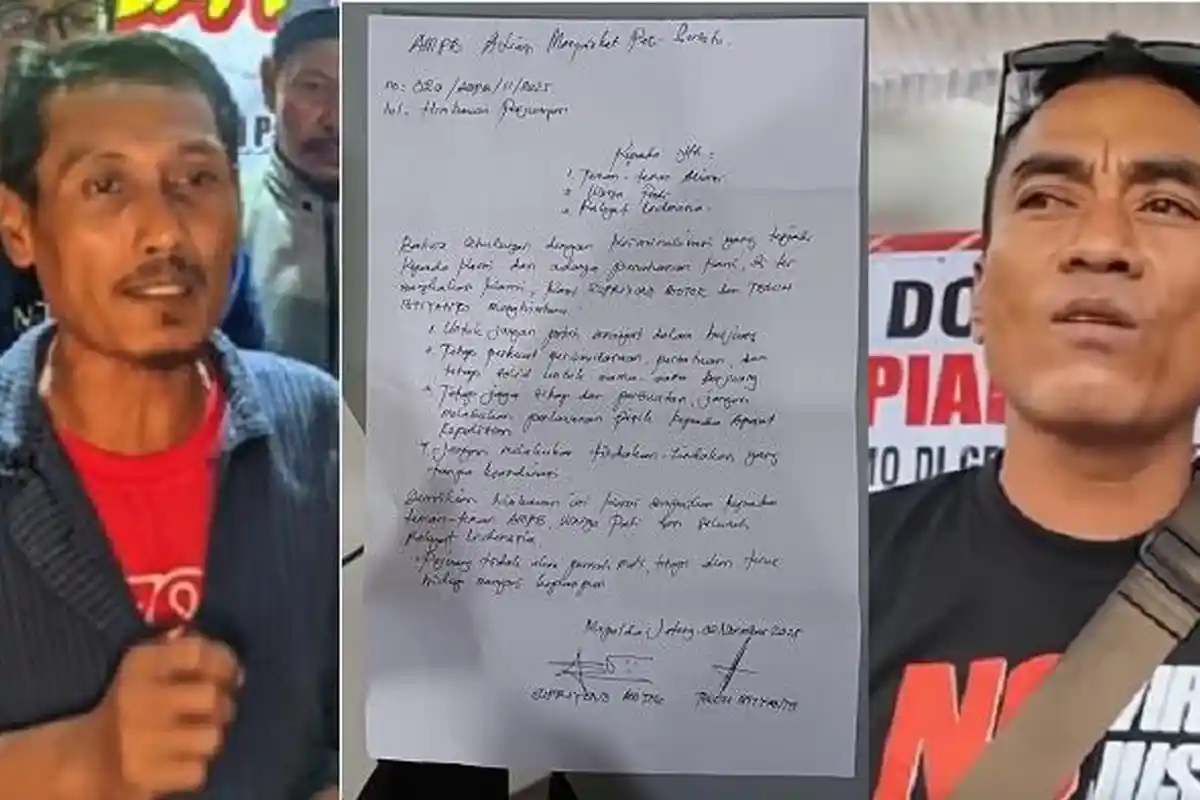 AMPB Aliansi Masyarakat Pati Bersatu.
no: 020/AMPB/11/2025
hal: Himbauan Perjuangan
Kepada Yth:
1. Teman-teman Aliansi
2. Warga Pati
3. Rakyat Indonesia.
Bahwa sehubungan dengan kriminalisasi yang terjadi
kepada kami dan adanya penahanan kami, di ter
kami, kami SUPRIYONO BOTOK dan TEGUH
ISTIYANTO menghimbau:
1. Untuk jangan patah semangat dalam berjuang
Tetap perkuat persaudaraan, persatuan, dan
tetap solid untuk sama-sama berjuang
Tetap jaga sikap dan perbuatan, jangan
melakukan perlawanan fisik kepada Aparat
Kepolisian
4. Jangan melakukan tindakan-tindakan yang
tanpa koordinasi
Demikian himbauan ini kami sampaikan kepada
teman-teman AMPB, Warga Pati dan seluruh
Rakyat Indonesia.
Pejuang tidak akan pernah mati, tetap dan terus
hidup
02 November 2025
SUPRIYONO BOTOK TEGUH ISTIYANTO
DO
PIA
DI
NO
VIR
JUS